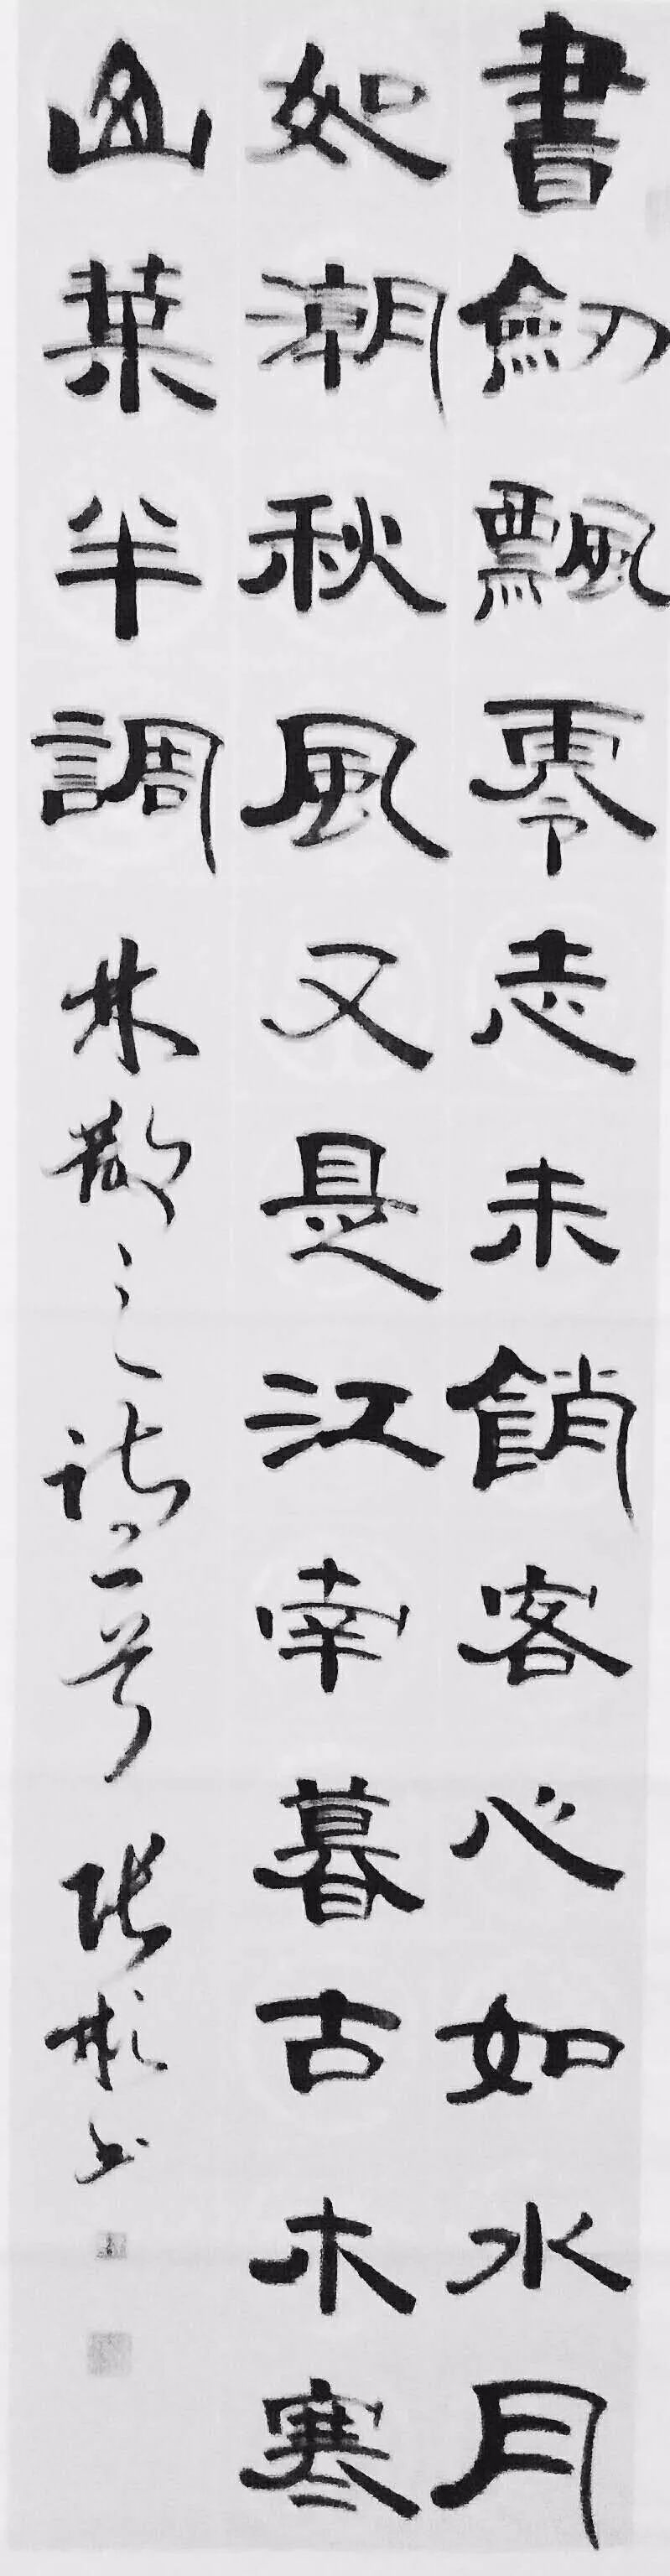 書劒飄零志未銷客心如水月
如潮秋風又是江南暮古木寒
山葉半調 林散之詩一首 張彬書